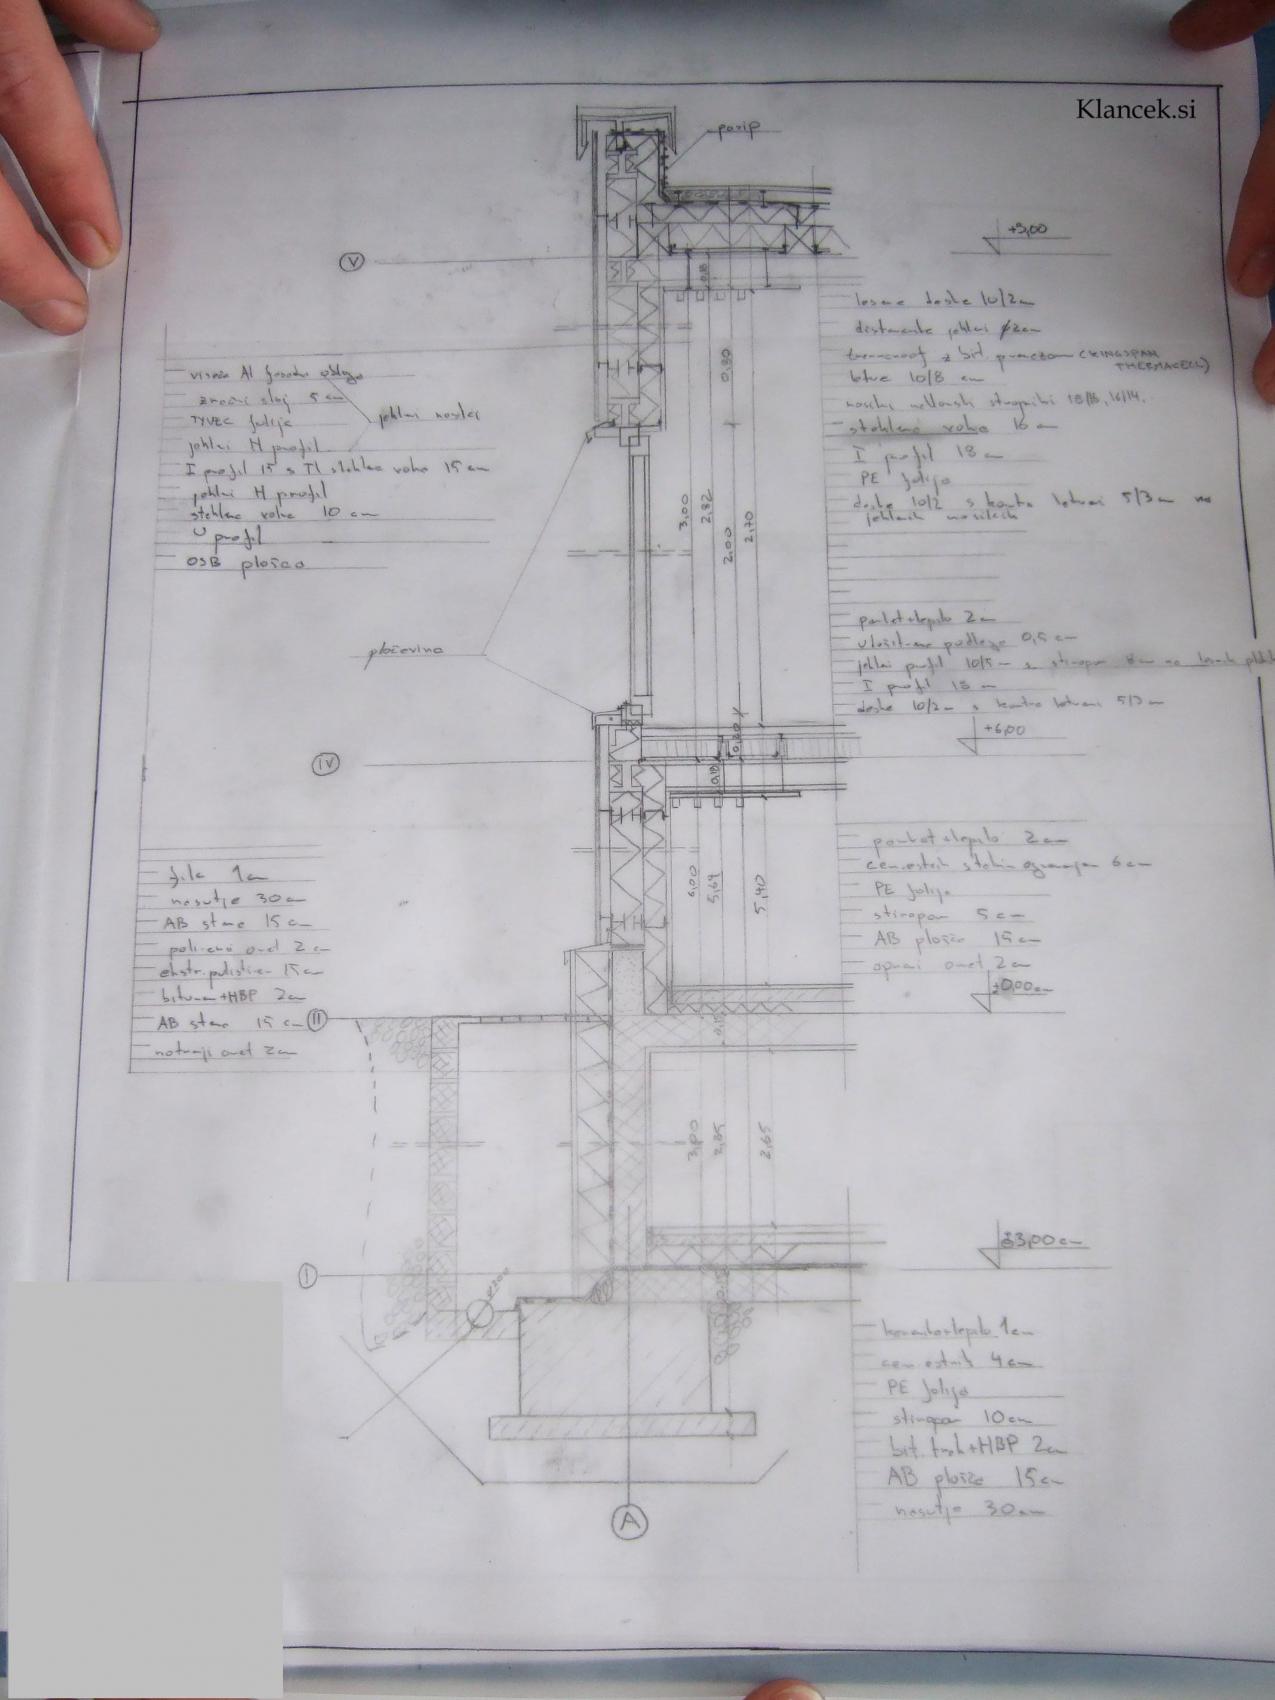 Klancek.si
+9,00
V
0,18
lesene deske 10/2cm
distančniki jekleni ø2cm
z bit. (KINGSPAN
THERMACELL)
letve 10/8 cm
18/18, 16/14.
steklena volna 16 cm
I profil 18 cm
PE folija
deske 10/2 s kontra letvami 5/3 cm na
jeklenih nosilcih
viseča Al fasadna obloga
zračni sloj 5 cm
TYVEC folija
jekleni nosilci
jekleni H profil
I profil 15 s TI steklena volna 15 cm
jekleni H profil
steklena volna 10 cm
U profil
OSB plošča
0,80
3,00
2,82
2,00
2,70
pločevina
parket+lepilo 2cm
podlaga 0,5 cm
jekleni profil 10/5
I profil 18 cm
deske 10/2cm s kontra letvami 5/3 cm
+6,00
IV
0,20
0,18
6,00
5,64
5,40
parket+lepilo 2cm
6cm
PE folija
stiropor 5cm
AB plošča 15cm
omet 2cm
±0,00cm
1cm
nasutje 30cm
AB stena 15cm
omet 2cm
ekstr. polistiren 15cm
bitumen+HBP 2cm
AB stena 15cm
notranji omet 2cm
II
0,15
3,00
2,85
2,65
3,00cm
I
ø200
keramika+lepilo 1cm
cem. estrih 4cm
PE folija
stiropor 10cm
bit. trak+HBP 2cm
AB plošča 15cm
nasutje 30cm
A